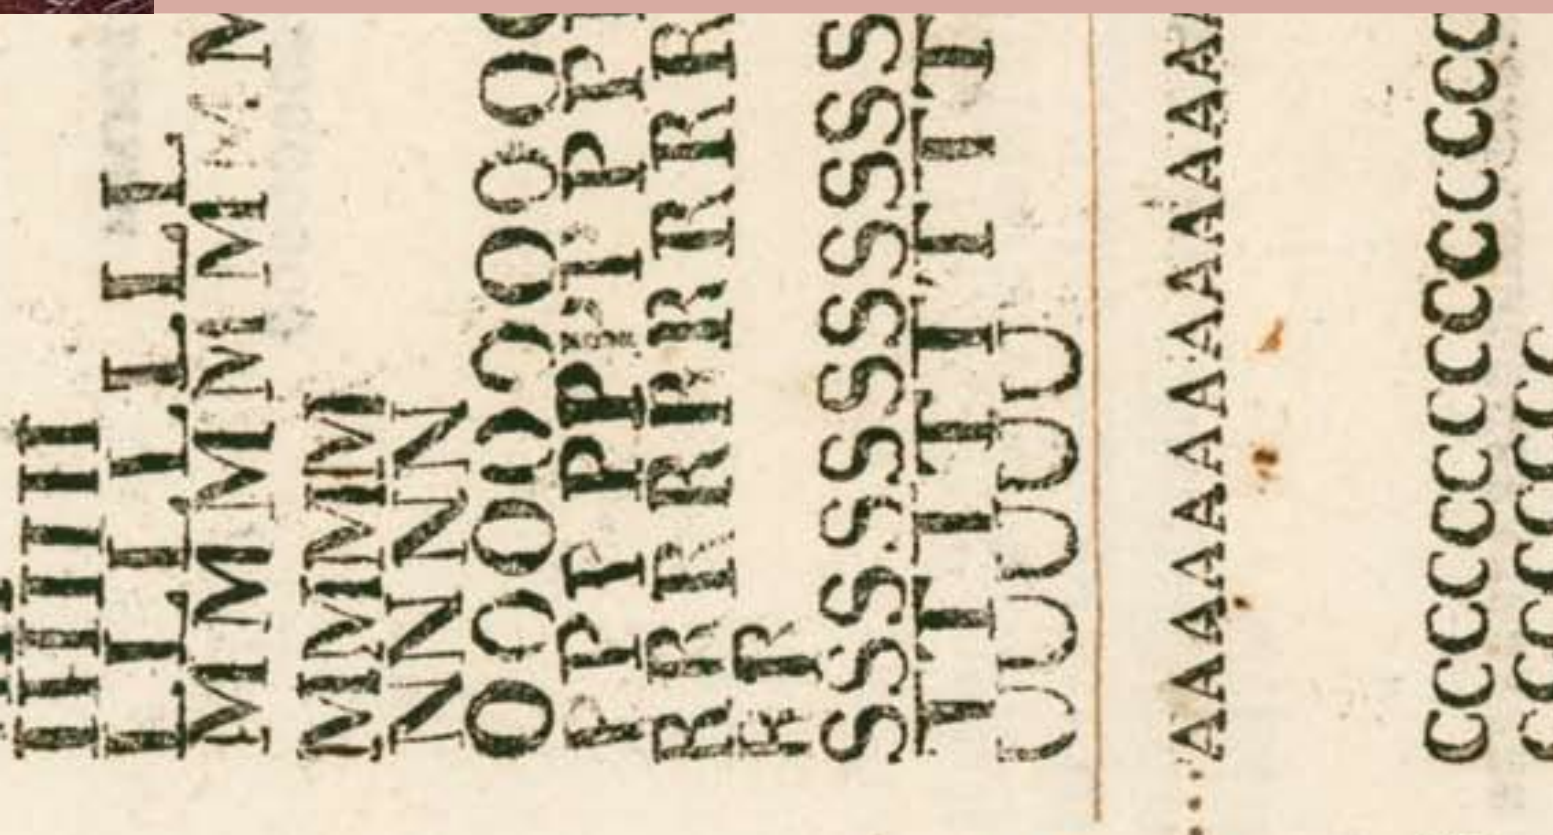 IIIIIII
LLLLLLL
MMMMMMM
MMMM
NNNN
OOOOOOOOO
PPPPPPPPPP
RRRRRRRRR
RR
SSSSSSSSSSS
TTTTTTTT
UUUUU
AAAAAAAAAAAAAA
CCCCCCCCCCCCCC
CCCCCCCC